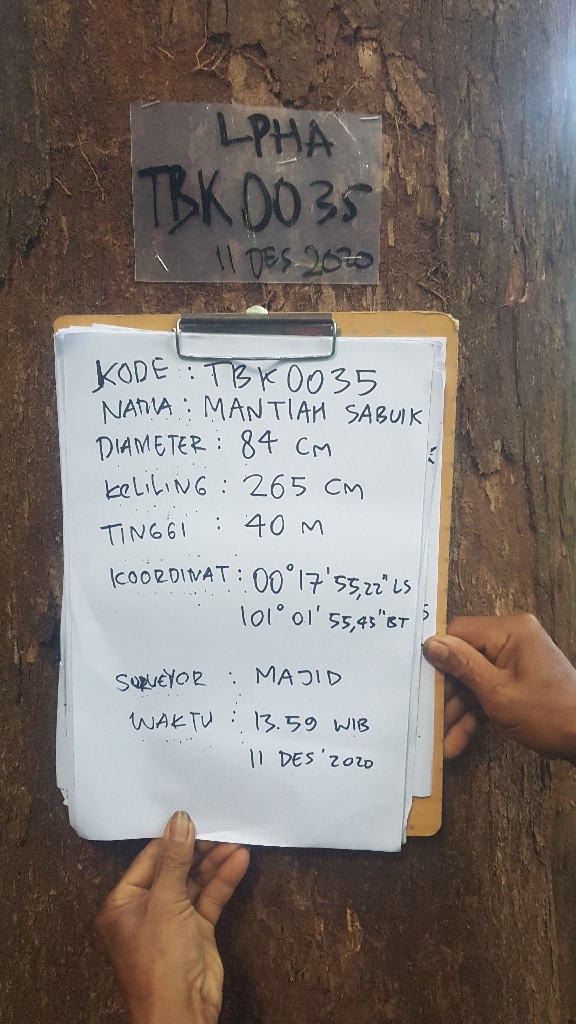 LPHA
TBK 0035
11 DES 2020
KODE : TBK 0035
NAMA : MANTIAH SABUIK
DIAMETER : 84 CM
KELILING : 265 CM
TINGGI : 40 M
KOORDINAT : 00° 17' 55,22" LS
101° 01' 55,43" BT
SURVEYOR : MAJID
WAKTU : 13.59 WIB
11 DES' 2020